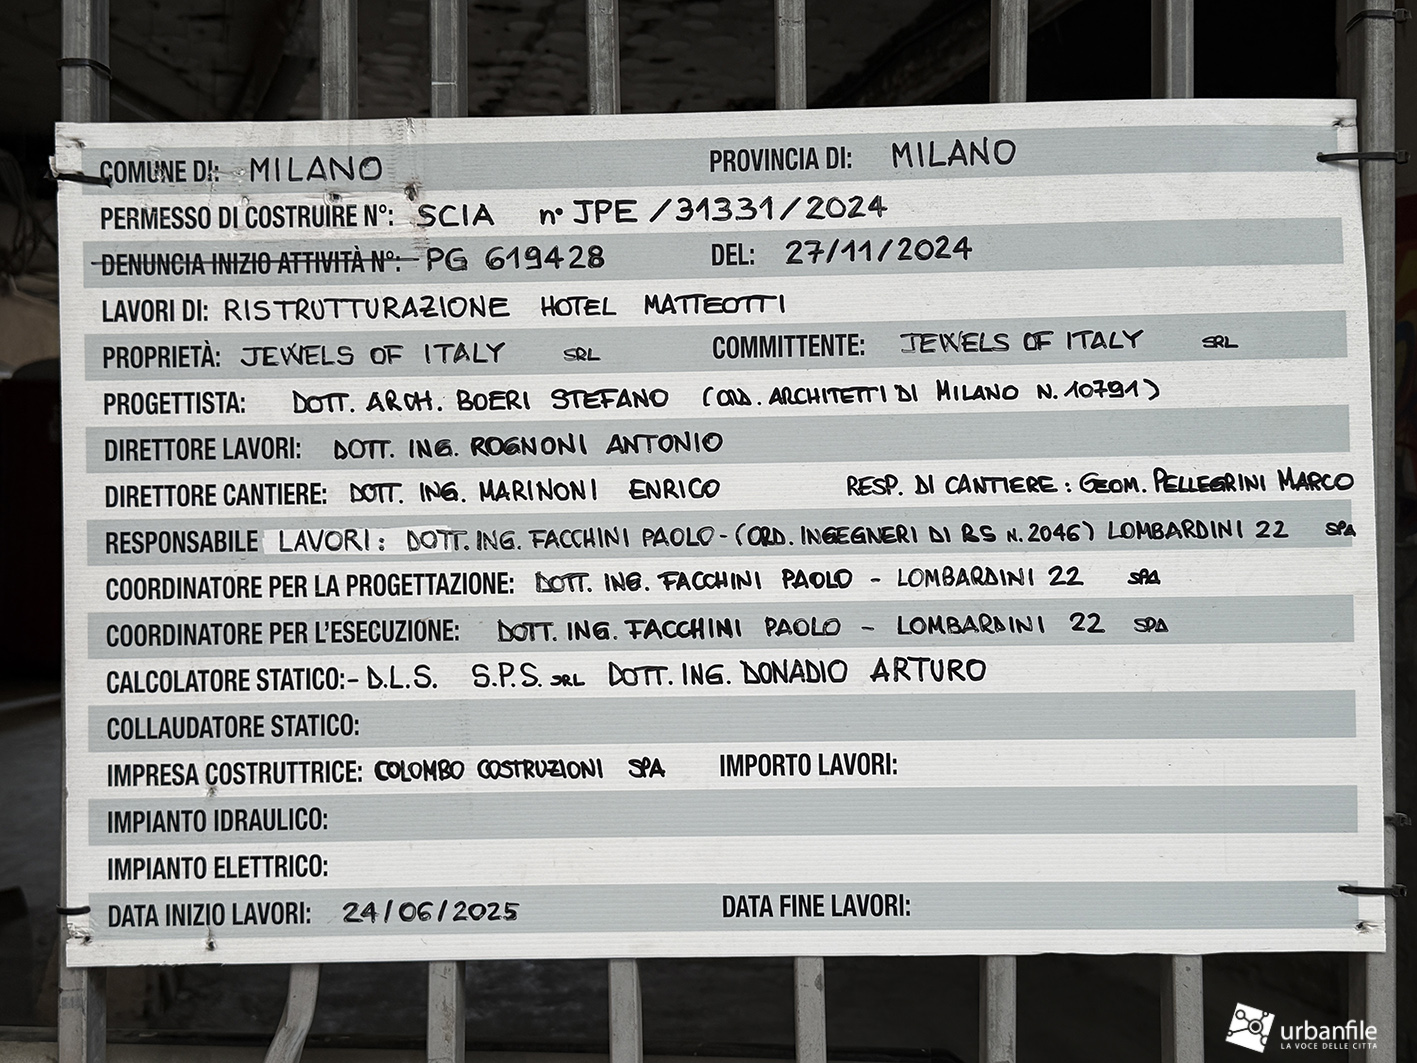 COMUNE DI: MILANO PROVINCIA DI: MILANO
PERMESSO DI COSTRUIRE N°: SCIA n° JPE /31331/2024
DENUNCIA INIZIO ATTIVITÀ N°: PG 619428 DEL: 27/11/2024
LAVORI DI: RISTRUTTURAZIONE HOTEL MATTEOTTI
PROPRIETÀ: JEWELS OF ITALY SRL COMMITTENTE: JEWELS OF ITALY SRL
PROGETTISTA: DOTT. ARCH. BOERI STEFANO (ORD. ARCHITETTI DI MILANO N. 10791)
DIRETTORE LAVORI: DOTT. ING. ROGNONI ANTONIO
DIRETTORE CANTIERE: DOTT. ING. MARINONI ENRICO RESP. DI CANTIERE: GEOM. PELLEGRINI MARCO
RESPONSABILE LAVORI: DOTT. ING. FACCHINI PAOLO - (ORD. INGEGNERI DI BS N. 2046) LOMBARDINI 22 SPA
COORDINATORE PER LA PROGETTAZIONE: DOTT. ING. FACCHINI PAOLO - LOMBARDINI 22 SPA
COORDINATORE PER L'ESECUZIONE: DOTT. ING. FACCHINI PAOLO - LOMBARDINI 22 SPA
CALCOLATORE STATICO:- D.L.S. S.P.S. SRL DOTT. ING. DONADIO ARTURO
COLLAUDATORE STATICO:
IMPRESA COSTRUTTRICE: COLOMBO COSTRUZIONI SPA IMPORTO LAVORI:
IMPIANTO IDRAULICO:
IMPIANTO ELETTRICO:
DATA INIZIO LAVORI: 24/06/2025 DATA FINE LAVORI:
urbanfile
LA VOCE DELLE CITTÀ